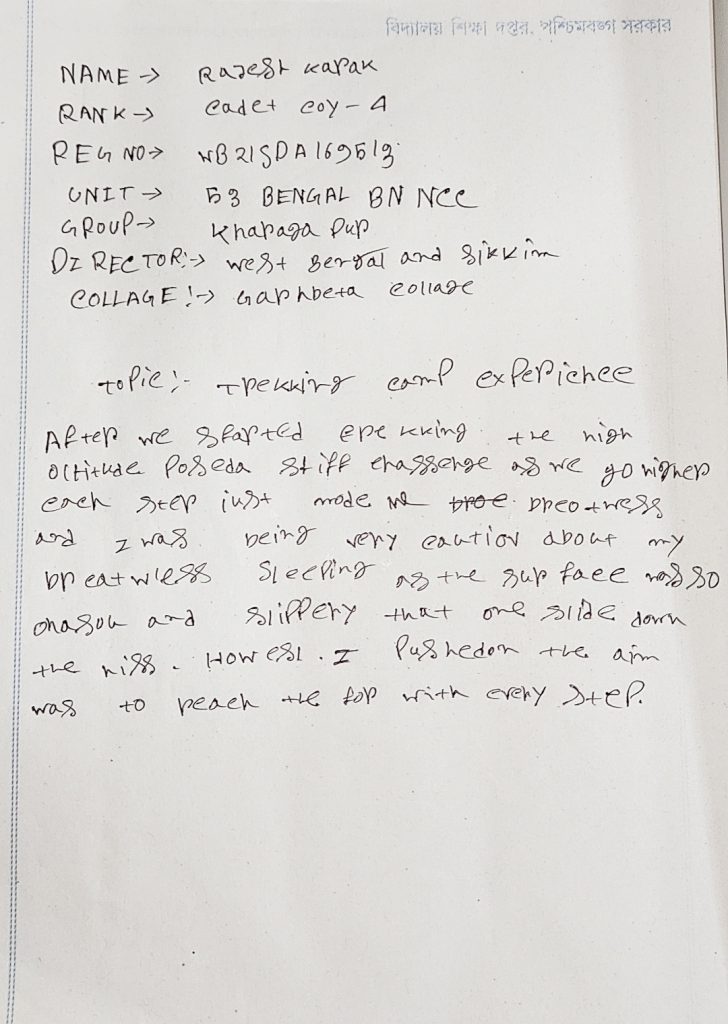 বিদ্যালয় শিক্ষা দপ্তর, পশ্চিমবঙ্গ সরকার
NAME → Rajesh Karak
RANK → cadet coy - 4
REG NO → WB21SDA169513
UNIT → 53 BENGAL BN NCC
GROUP → Kharagapur
DIRECTOR:→ West Bengal and Sikkim
COLLAGE :→ Garhbeta collage
Topic :- Trekking camp experience
After we started trekking the high
altitude Poseda stiff challenge as we go higher
each step just made me breathless
and I was being very caution about my
breathless sleeping as the surface was so
and slippery that one slide down
the hill. Howesl. I Pushedon the aim
was to reach the top with every step.